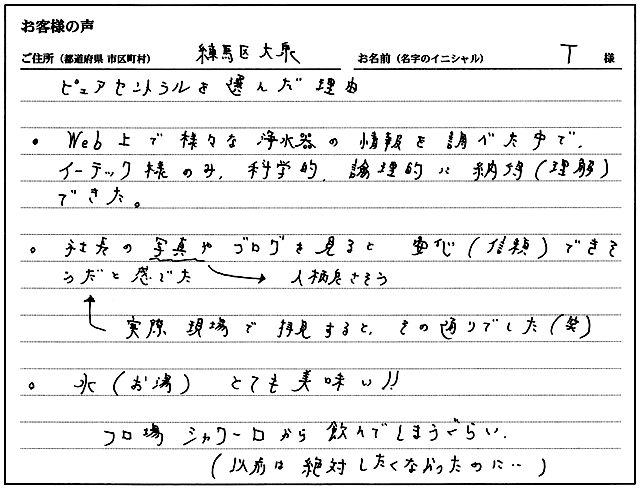 お客様の声
ご住所（都道府県 市区町村） 練馬区大泉 お名前（名字のイニシャル） T 様
ピュアセントラルを選んだ理由
・Web上で様々な浄水器の情報を調べた中で、
イーテック様のみ、科学的、論理的に納得（理解）
できた。
・社長の写真やブログを見ると安心（信頼）できそ
うだと感じた → 人柄良さそう
実際現場で拝見すると、その通りでした（笑）
・水（お湯）とても美味い!!
フロ場シャワー口から飲んでしまうぐらい。
（以前は絶対したくなかったのに…）